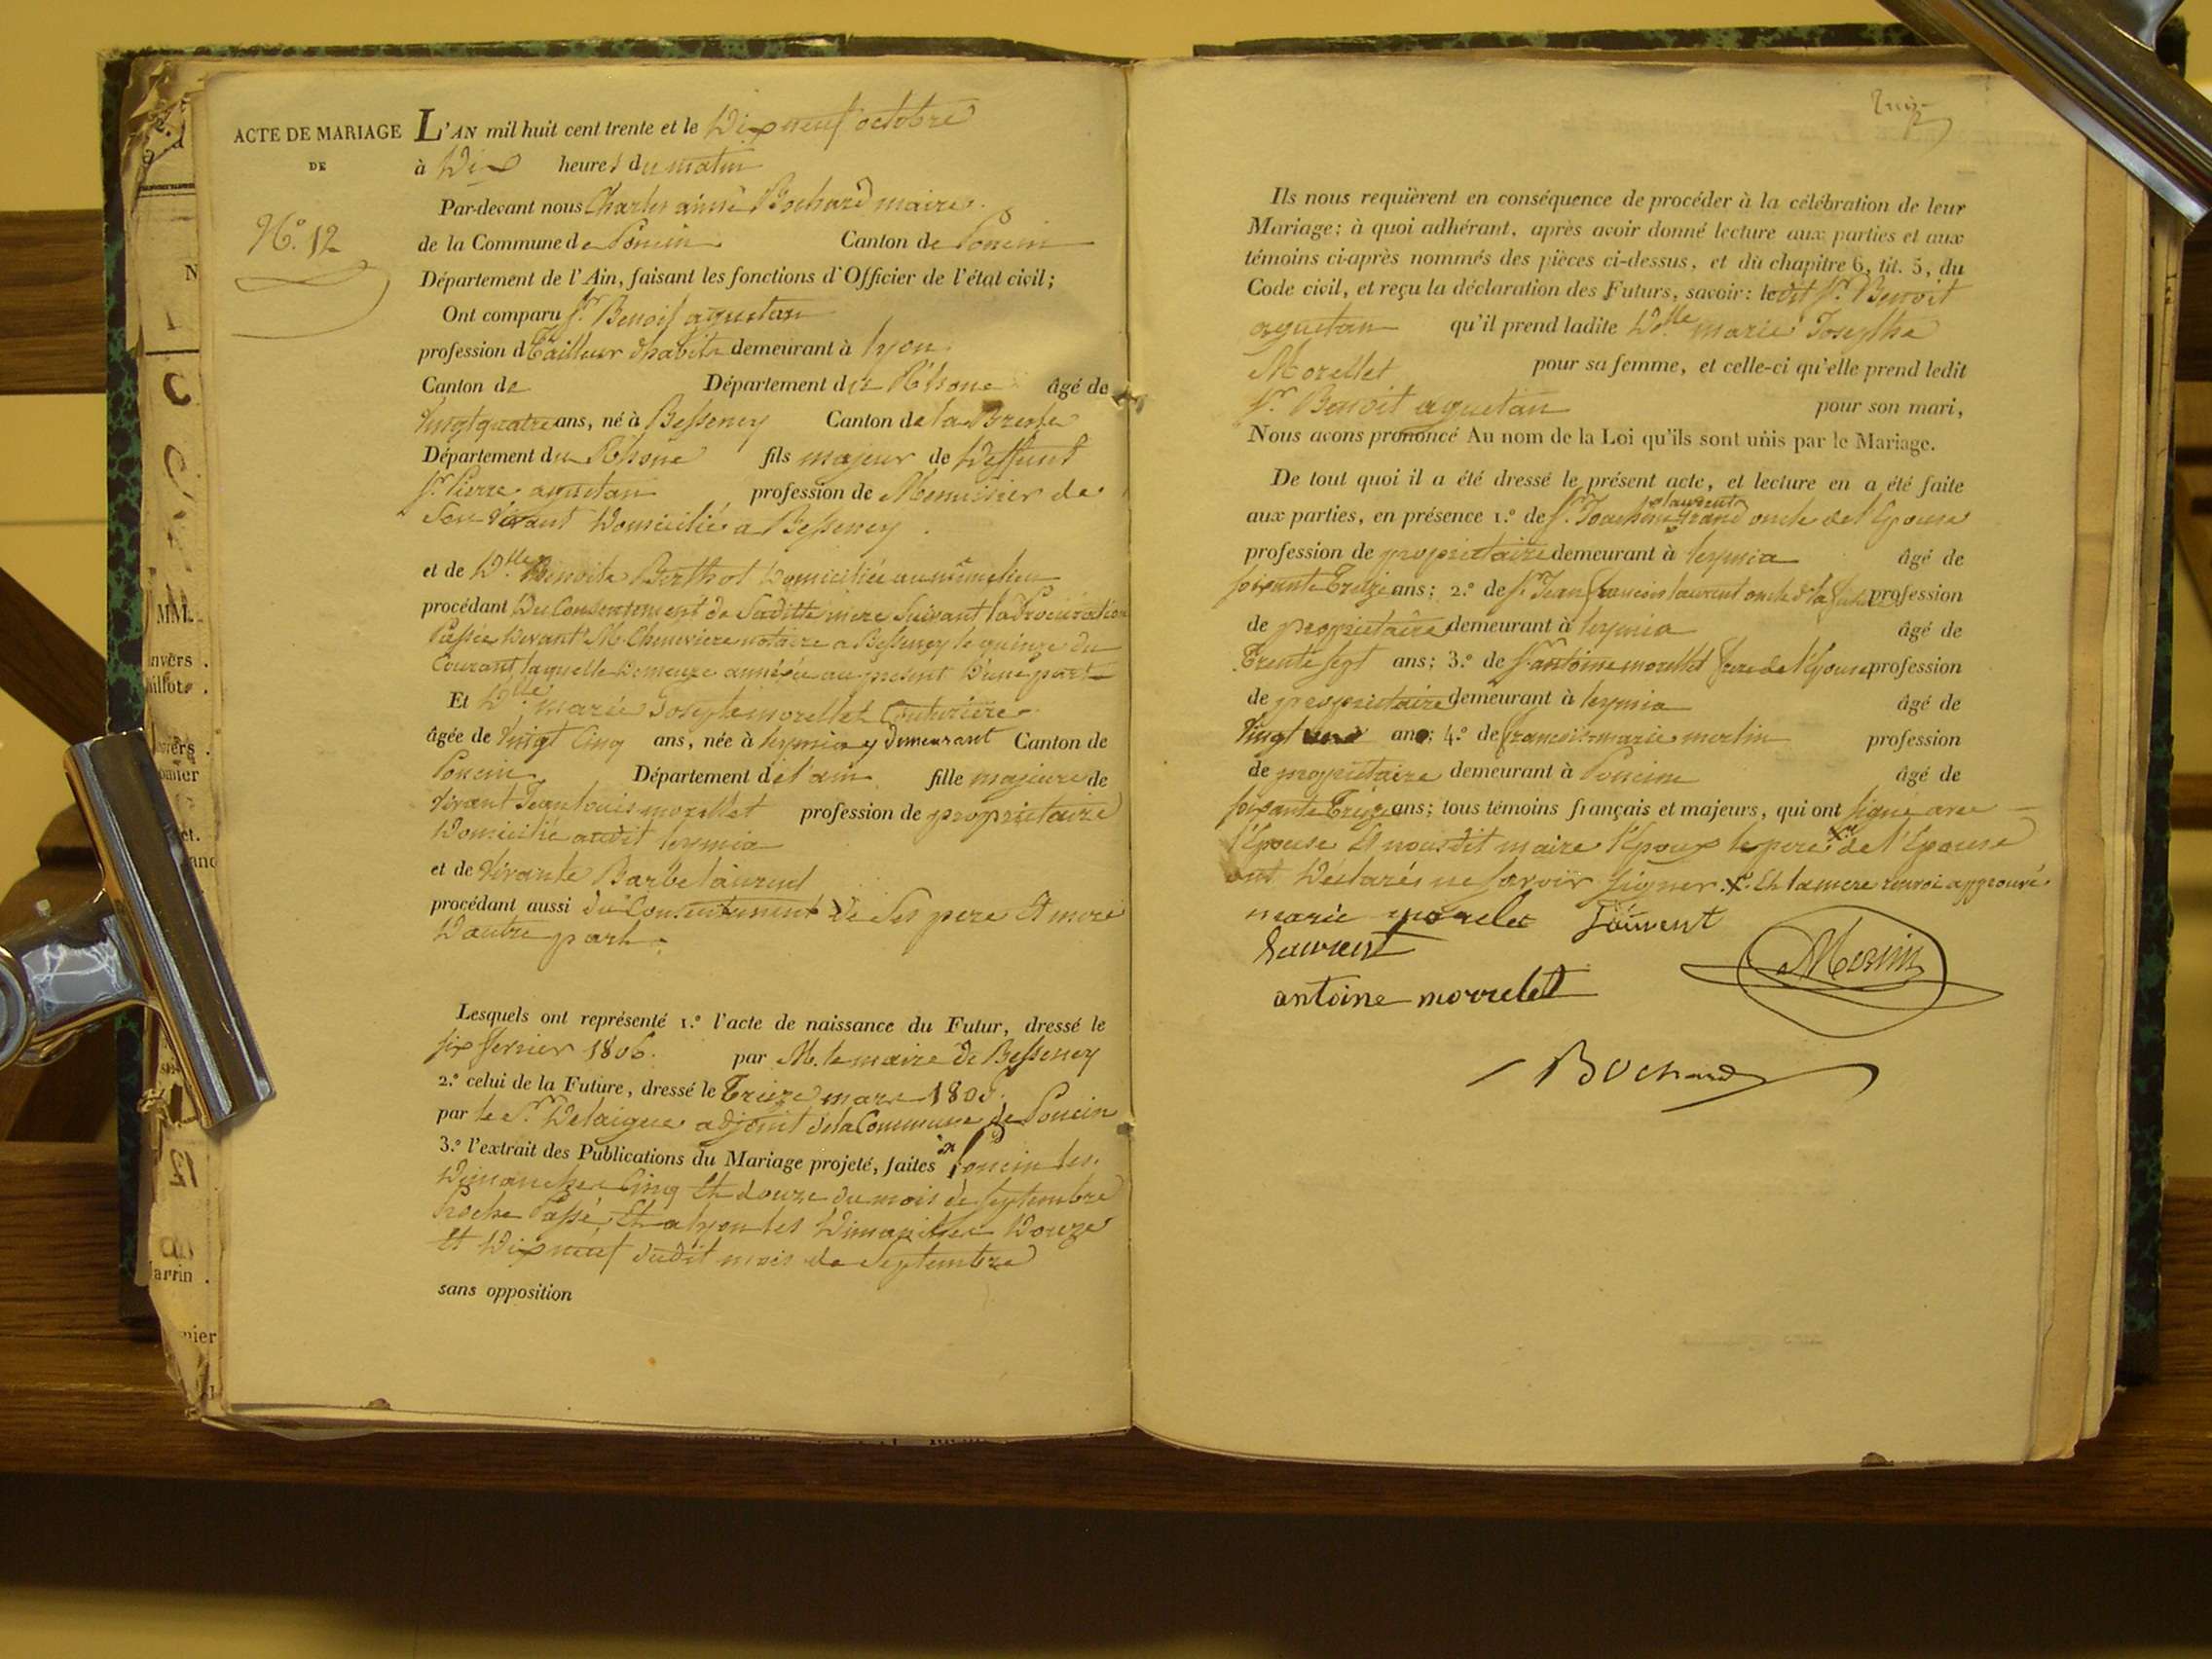 ACTE DE MARIAGE
DE
N.º 12
L'AN mil huit cent trente et le Dix neuf octobre
à Dix heures du matin
Par-devant nous Charles aimé Bochard maire
de la Commune de Poncin Canton de Poncin
Département de l'Ain, faisant les fonctions d'Officier de l'état civil;
Ont comparu Sr. Benoit aguetan
profession de Tailleur d'habits demeurant à Lyon
Canton de Département du Rhone âgé de
Vingt quatre ans, né à Bessenay Canton de la Bresle
Département du Rhone fils majeur de Deffunt
Sr. Pierre aguetan profession de Menuisier de
Son vivant Domicilié a Bessenay
et de Dlle Benoite Berthot Domiciliée au même lieu
procédant Du Consentement de Saditte mere Suivant la Procuration
Passée Devant M. Cheneviere notaire a Bessenay le quinze du
Courant, laquelle Demeure annéxée au présent D'une part
Et Dlle marie Josephte morellet Couturiere
âgée de Vingt Cinq ans, née à leymia y Demeurant Canton de
Poncin Département de l'ain fille majeure de
Vivant Jean louis morellet profession de proprietaire
Domicilié audit leymia
et de Vivante Barbe laurent
procédant aussi du Consentement De Ses pere Et mere
D'autre part.
Lesquels ont représenté 1.º l'acte de naissance du Futur, dressé le
six fevrier 1806. par M. le maire de Bessenay
2.º celui de la Future, dressé le Treize mars 1805.
par le Sr. Delaigue adjoint de la Commune de Poncin
3.º l'extrait des Publications du Mariage projeté, faites à Poncin les
Dimanches Cinq Et douze du mois de Septembre
Proche Passé, Et a lyon les Dimanches Douze
Et Dix neuf dudit mois de Septembre
sans opposition
Ils nous requièrent en conséquence de procéder à la célébration de leur
Mariage: à quoi adhérant, après avoir donné lecture aux parties et aux
témoins ci-après nommés des pièces ci-dessus, et du chapitre 6, tit. 5, du
Code civil, et reçu la déclaration des Futurs, savoir: ledit Sr. Benoit
aguetan qu'il prend ladite Dlle marie Josephte
Morellet pour sa femme, et celle-ci qu'elle prend ledit
Sr. Benoit aguetan pour son mari,
Nous avons prononcé Au nom de la Loi qu'ils sont unis par le Mariage.
De tout quoi il a été dressé le présent acte, et lecture en a été faite
aux parties, en présence 1.º de Sr. Joachim laurent grand oncle de l'Epouse
profession de proprietaire demeurant à leymia âgé de
soixante Treize ans; 2.º de Sr. Jean françois laurent oncle de la future profession
de proprietaire demeurant à leymia âgé de
Trente Sept ans; 3.º de Sr. antoine morellet frere de l'Epouse profession
de proprietaire demeurant à leymia âgé de
Vingt ans; 4.º de francois marie merlin profession
de proprietaire demeurant à Poncin âgé de
soixante Treize ans; tous témoins français et majeurs, qui ont signé avec
l'Epouse Et nous dit maire l'Epoux le pere de l'Epouse
ont Déclarés ne savoir signer. Et la mere renvoi approuvé.
marie morelet laurent
laurent
Merlin
antoine morrelet
Bochard